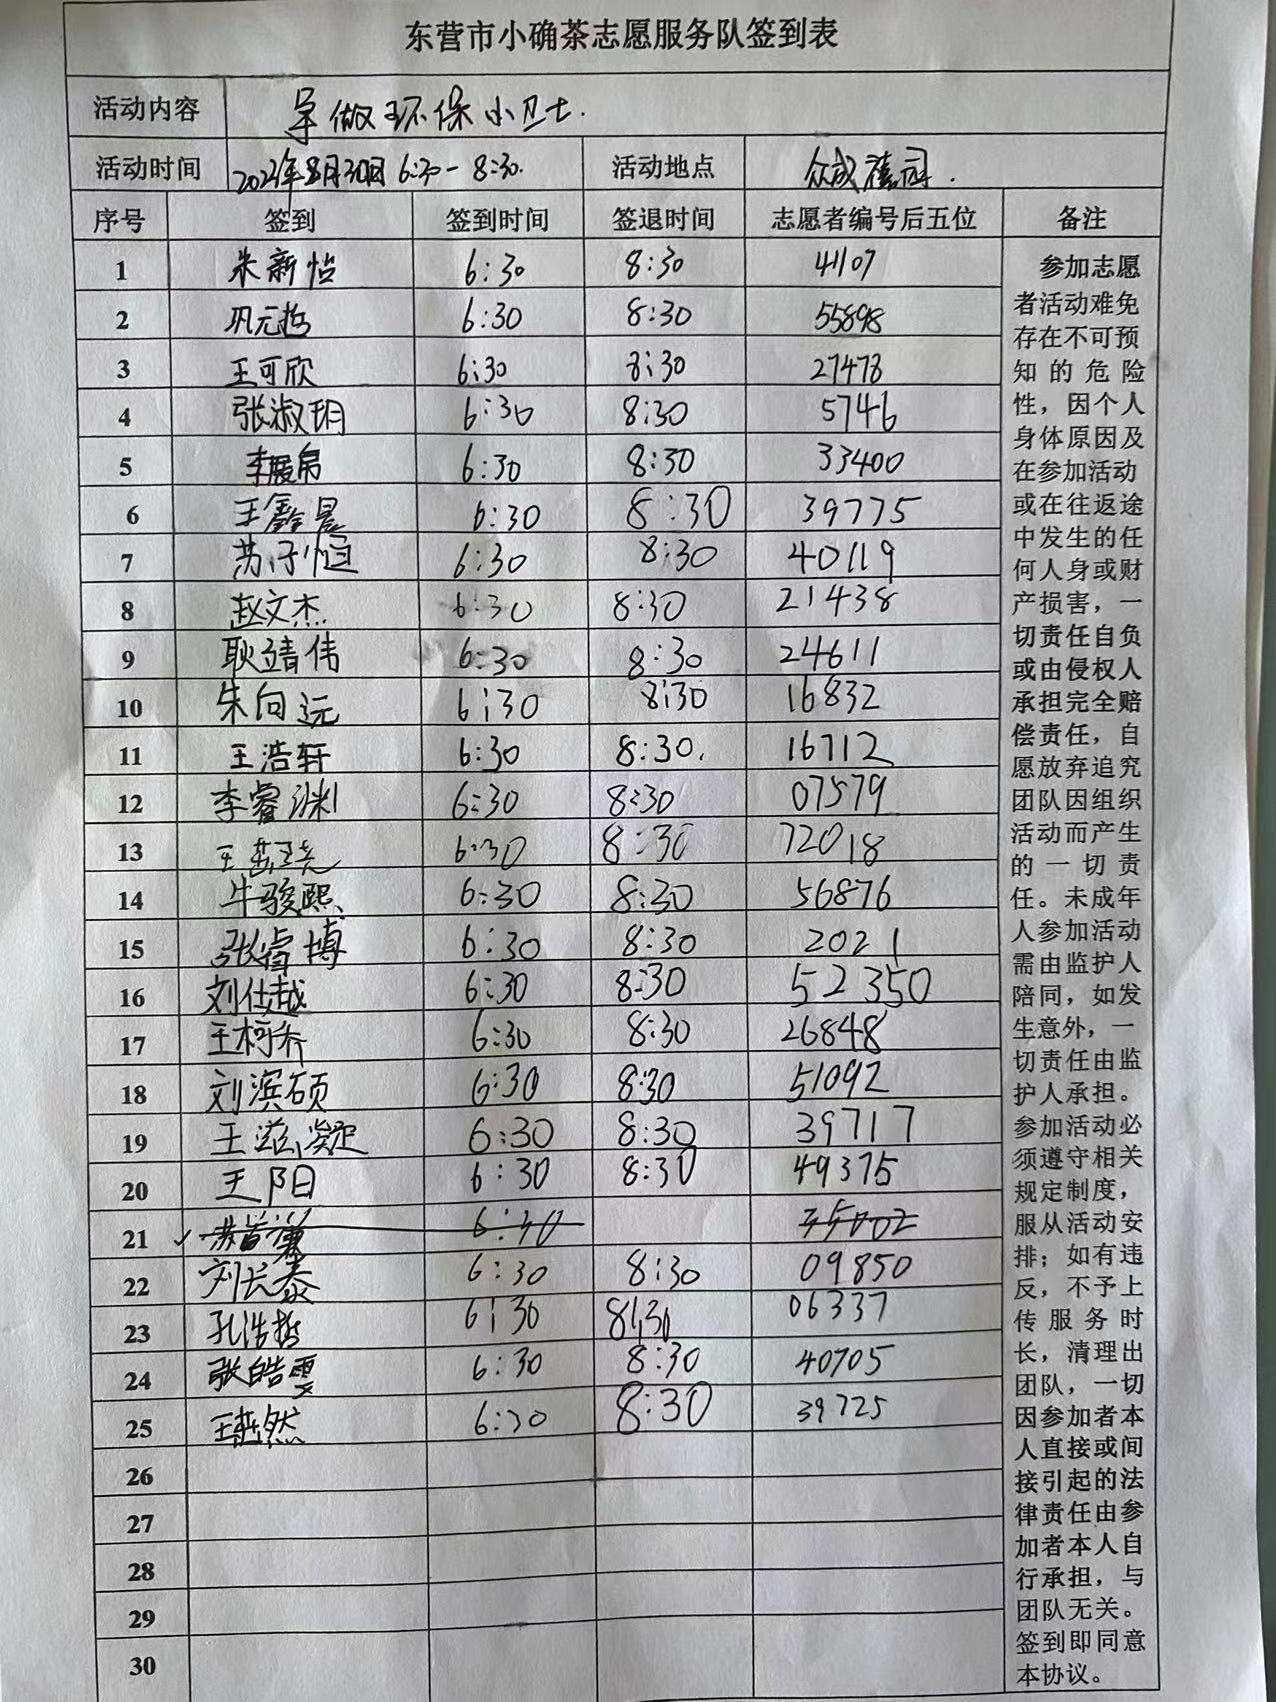 东营市小确茶志愿服务队签到表
活动内容 争做环保小卫士.
活动时间 2021年8月30日 6:30-8:30. 活动地点 众成 园.
序号 签到 签到时间 签退时间 志愿者编号后五位 备注
1 朱新怡 6:30 8:30 41107
2 巩元哲 6:30 8:30 55898
3 王可欣 6:30 8:30 27478
4 张淑玥 6:30 8:30 5746
5 李展帛 6:30 8:30 33400
6 王鑫昊 6:30 8:30 39775
7 苏子恒 6:30 8:30 40119
8 赵文杰 6:30 8:30 21438
9 耿靖伟 6:30 8:30 24611
10 朱向远 6:30 8:30 16832
11 王浩轩 6:30 8:30. 16712
12 李睿渊 6:30 8:30 07579
13 王 6:30 8:30 72018
14 牛骏熙 6:30 8:30 56876
15 张睿博 6:30 8:30 2021
16 刘仕越 6:30 8:30 52350
17 王柯乔 6:30 8:30 26848
18 刘滨硕 6:30 8:30 51092
19 王滋凝 6:30 8:30 39717
20 王阳 6:30 8:30 49375
21 ✓ 6:30
22 刘长泰 6:30 8:30 09850
23 孔浩哲 6:30 8:30 06337
24 张皓雯 6:30 8:30 40705
25 王 然 6:30 8:30 39725
26
27
28
29
30
参加志愿
者活动难免
存在不可预
知的危险
性，因个人
身体原因及
在参加活动
或在往返途
中发生的任
何人身或财
产损害，一
切责任自负
或由侵权人
承担完全赔
偿责任，自
愿放弃追究
团队因组织
活动而产生
的一切责
任。未成年
人参加活动
需由监护人
陪同，如发
生意外，一
切责任由监
护人承担。
参加活动必
须遵守相关
规定制度，
服从活动安
排；如有违
反，不予上
传服务时
长，清理出
团队，一切
因参加者本
人直接或间
接引起的法
律责任由参
加者本人自
行承担，与
团队无关。
签到即同意
本协议。